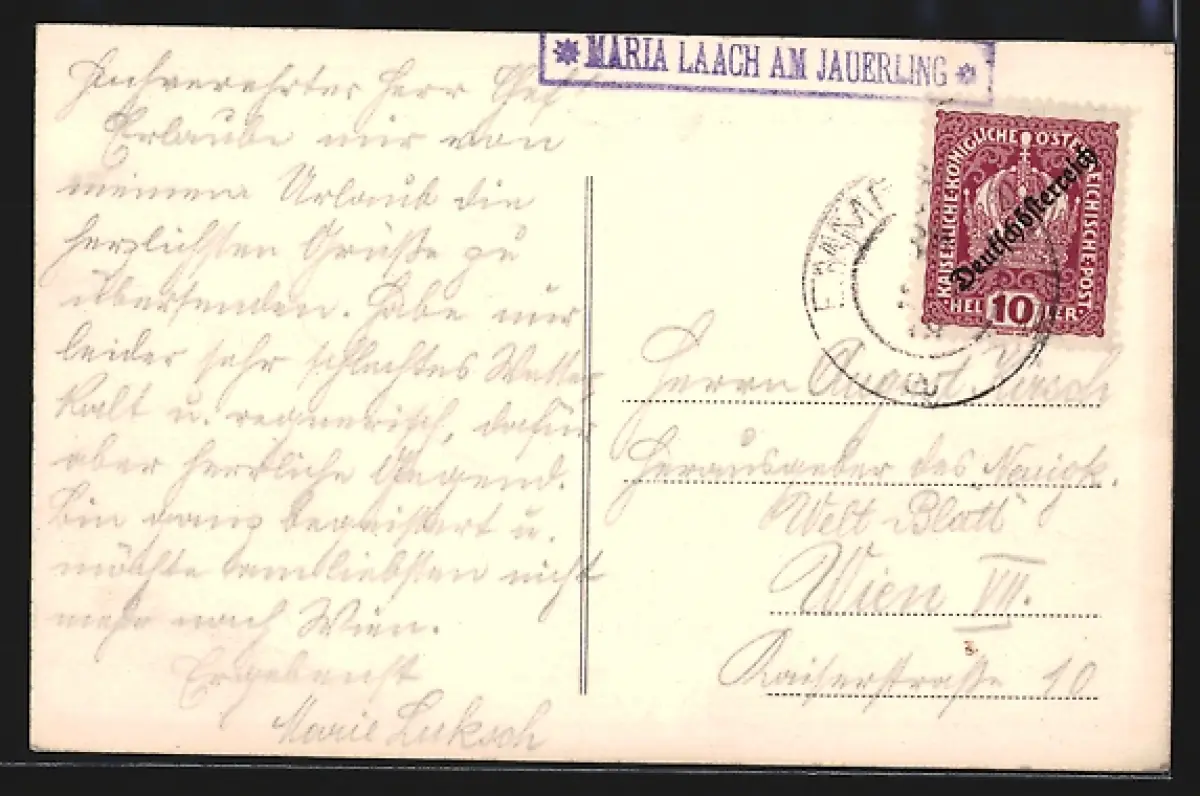 Hochverehrter Herr Chef!
Erlaube mir von
meinem Urlaub die
herzlichsten Grüße zu
übersenden. Habe nur
leider sehr schlechtes Wetter
kalt u. regnerisch, dafür
aber herrliche Gegend.
Bin ganz begeistert u.
möchte am liebsten nicht
mehr nach Wien.
Ergebenst
Marie Luksch
* MARIA LAACH AM JAUERLING *
KAISERLICHE KÖNIGLICHE ÖSTERREICHISCHE POST
Deutschösterreich
HELLER 10
Herrn August Kirsch
Herausgeber des
Welt Blatt
Wien VII.
Kaiserstraße 10